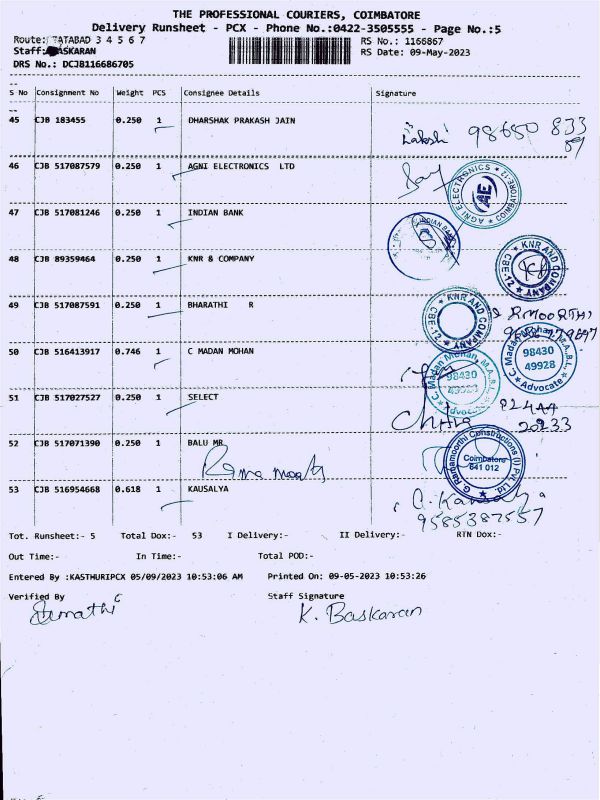 THE PROFESSIONAL COURIERS, COIMBATORE
Delivery Runsheet - PCX - Phone No.:0422-3505555 - Page No.:5
Route: TATABAD 3 4 5 6 7
RS No.: 1166867
Staff: BASKARAN
RS Date: 09-May-2023
DRS No.: DCJB116686705
S No Consignment No Weight PCS Consignee Details Signature
45 CJB 183455 0.250 1 DHARSHAK PRAKASH JAIN
Lakshi 98650 833
46 CJB 517087579 0.250 1 AGNI ELECTRONICS LTD
AGNI ELECTRONICS AE COIMBATORE-12
47 CJB 517081246 0.250 1 INDIAN BANK
INDIAN BANK
48 CJB 89359464 0.250 1 KNR & COMPANY
KNR AND COMPANY CBE-12
49 CJB 517087591 0.250 1 BHARATHI R
KNR AND COMPANY CBE-12
R MOORTHI
50 CJB 516413917 0.746 1 C MADAN MOHAN
C. Madan Mohan, M.A.,B.L., 98430 49928 Advocate
C. Madan Mohan, M.A.,B.L., 98430 49928 Advocate
51 CJB 517027527 0.250 1 SELECT
Chitra
20233
52 CJB 517071390 0.250 1 BALU MR
G. Ramamoorthi Constructions (I) Pvt. Ltd. Coimbatore 641 012
53 CJB 516954668 0.618 1 KAUSALYA
9585387557
Tot. Runsheet:- 5 Total Dox:- 53 I Delivery:- II Delivery:- RTN Dox:-
Out Time:- In Time:- Total POD:-
Entered By :KASTHURIPCX 05/09/2023 10:53:06 AM Printed On: 09-05-2023 10:53:26
Verified By Staff Signature
K. Baskaran